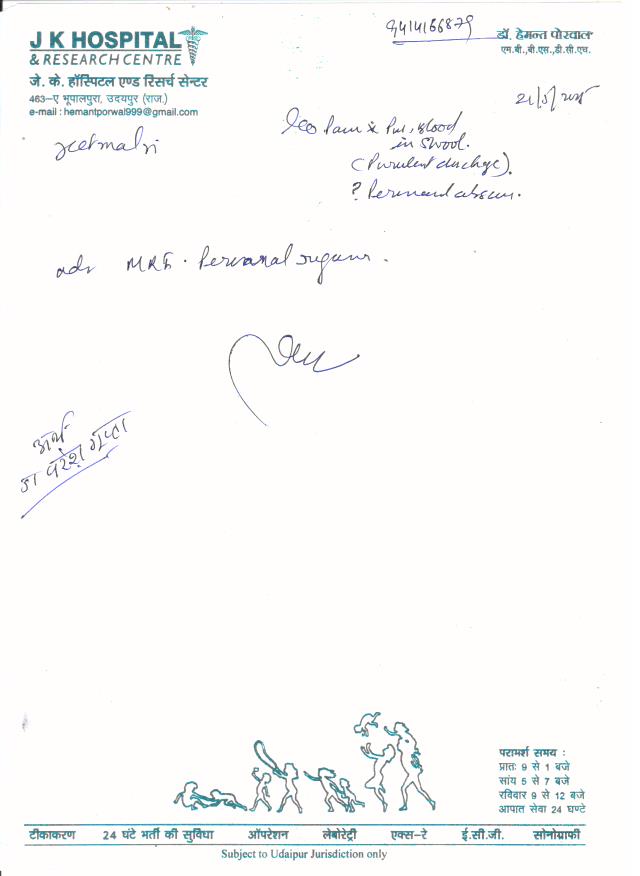 J K HOSPITAL
& RESEARCH CENTRE
जे. के. हॉस्पिटल एण्ड रिसर्च सेन्टर
463-ए भूपालपुरा, उदयपुर (राज.)
e-mail : hemantporwal999@gmail.com
9414166879
डॉ. हेमन्त पोरवाल
एम.बी.,बी.एस.,डी.सी.एच.
c/o Pain & Pus, blood
in stool.
(Purulent discharge).
adv MRI. Perianal region.
अर्थ
डा परेश गुप्ता
परामर्श समय :
प्रातः 9 से 1 बजे
सांय 5 से 7 बजे
रविवार 9 से 12 बजे
आपात सेवा 24 घण्टे
टीकाकरण 24 घंटे भर्ती की सुविधा ऑपरेशन लेबोरेट्री एक्स-रे ई.सी.जी. सोनोग्राफी
Subject to Udaipur Jurisdiction only